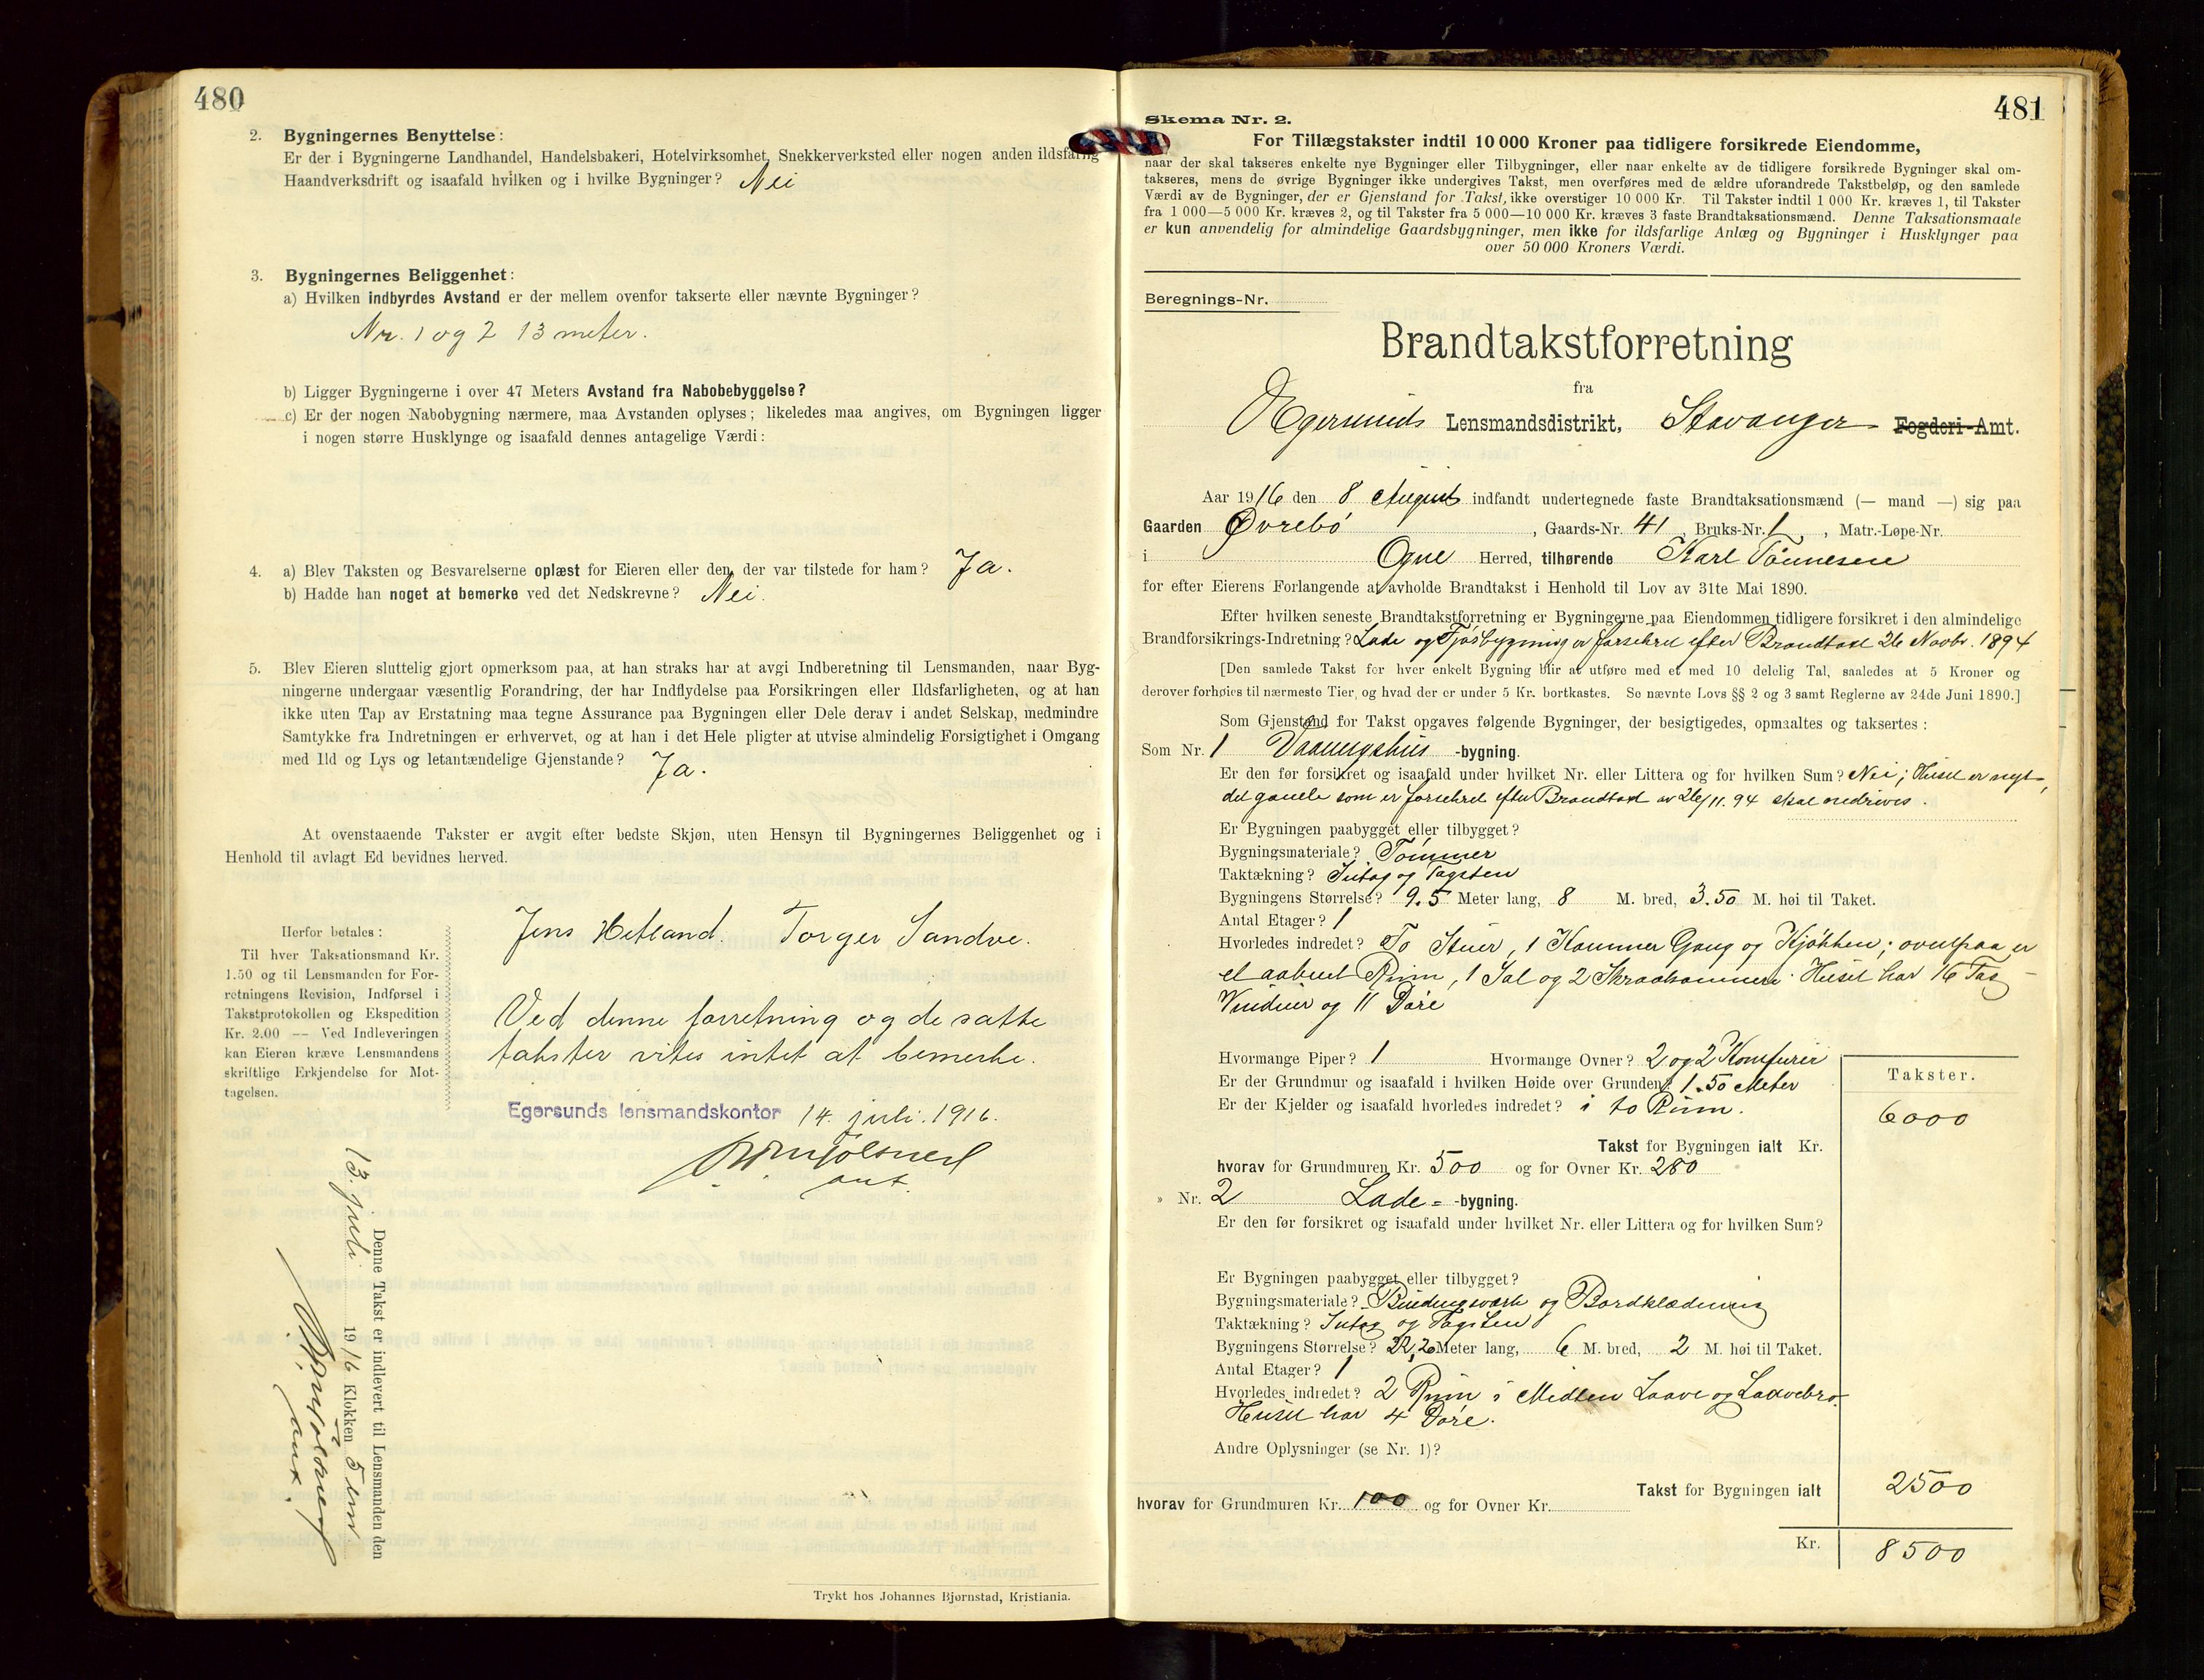 480
2. Bygningernes Benyttelse:
Er der i Bygningerne Landhandel, Handelsbakeri, Hotelvirksomhet, Snekkerverksted eller nogen anden ildsfarlig
Haandverksdrift og isaafald hvilken og i hvilke Bygninger? Nei
3. Bygningernes Beliggenhet:
a) Hvilken indbyrdes Avstand er der mellem ovenfor takserte eller nævnte Bygninger?
Nr. 1 og 2 13 meter.
b) Ligger Bygningerne i over 47 Meters Avstand fra Nabobebyggelse?
c) Er der nogen Nabobygning nærmere, maa Avstanden oplyses; likeledes maa angives, om Bygningen ligger
i nogen større Husklynge og isaafald dennes antagelige Værdi:
4. a) Blev Taksten og Besvarelserne oplæst for Eieren eller den, der var tilstede for ham? Ja.
b) Hadde han noget at bemerke ved det Nedskrevne? Nei.
5. Blev Eieren sluttelig gjort opmerksom paa, at han straks har at avgi Indberetning til Lensmanden, naar Byg-
ningerne undergaar væsentlig Forandring, der har Indflydelse paa Forsikringen eller Ildsfarligheten, og at han
ikke uten Tap av Erstatning maa tegne Assurance paa Bygningen eller Dele derav i andet Selskap, medmindre
Samtykke fra Indretningen er erhvervet, og at han i det Hele pligter at utvise almindelig Forsigtighet i Omgang
med Ild og Lys og letantændelige Gjenstande? Ja.
At ovenstaaende Takster er avgit efter bedste Skjøn, uten Hensyn til Bygningernes Beliggenhet og i
Henhold til avlagt Ed bevidnes herved.
Herfor betales:
Til hver Taksationsmand Kr.
1.50 og til Lensmanden for For-
retningens Revision, Indførsel i
Takstprotokollen og Ekspedition
Kr. 2.00 — Ved Indleveringen
kan Eieren kræve Lensmandens
skriftlige Erkjendelse for Mot-
tagelsen.
Jens Hetland. Torger Sandve.
Ved denne forretning og de satte
takster vites intet at bemerke.
Egersunds lensmandskontor 14. juli. 1916.
aut.
Denne Takst er indlevert til Lensmanden den
13. juli 1916 Klokken 5 em
aut.
Trykt hos Johannes Bjørnstad, Kristiania.
481
Skema Nr. 2.
For Tillægstakster indtil 10 000 Kroner paa tidligere forsikrede Eiendomme,
naar der skal takseres enkelte nye Bygninger eller Tilbygninger, eller naar enkelte av de tidligere forsikrede Bygninger skal om-
takseres, mens de øvrige Bygninger ikke undergives Takst, men overføres med de ældre uforandrede Takstbeløp, og den samlede
Værdi av de Bygninger, der er Gjenstand for Takst, ikke overstiger 10 000 Kr. Til Takster indtil 1 000 Kr. kræves 1, til Takster
fra 1 000—5 000 Kr. kræves 2, og til Takster fra 5 000—10 000 Kr. kræves 3 faste Brandtaksationsmænd. Denne Taksationsmaate
er kun anvendelig for almindelige Gaardsbygninger, men ikke for ildsfarlige Anlæg og Bygninger i Husklynger paa
over 50 000 Kroners Værdi.
Beregnings-Nr.
Brandtakstforretning
fra
Egersunds Lensmandsdistrikt, Stavanger Fogderi-Amt.
Aar 1916 den 8 August indfandt undertegnede faste Brandtaksationsmænd (— mand —) sig paa
Gaarden Øvrebö, Gaards-Nr. 41, Bruks-Nr. 1, Matr.-Løpe-Nr.
i Ogne Herred, tilhørende Karl Tönnesen
for efter Eierens Forlangende at avholde Brandtakst i Henhold til Lov av 31te Mai 1890.
Efter hvilken seneste Brandtakstforretning er Bygningerne paa Eiendommen tidligere forsikret i den almindelige
Brandforsikrings-Indretning? Lade og Fjösbygning er forsikret efter Brandtaxt 26 Novbr. 1894
[Den samlede Takst for hver enkelt Bygning blir at utføre med et med 10 delelig Tal, saaledes at 5 Kroner og
derover forhøies til nærmeste Tier, og hvad der er under 5 Kr. bortkastes. Se nævnte Lovs §§ 2 og 3 samt Reglerne av 24de Juni 1890.]
Som Gjenstand for Takst opgaves følgende Bygninger, der besigtigedes, opmaaltes og taksertes:
Som Nr. 1 Vaaningshus -bygning.
Er den før forsikret og isaafald under hvilket Nr. eller Littera og for hvilken Sum? Nei; Huset er nyt,
det gamle som er forsikret efter Brandtaxt av 26/11. 94 skal nedrives.
Er Bygningen paabygget eller tilbygget?
Bygningsmateriale? Tömmer
Taktækning? Sutag og Tagsten
Bygningens Størrelse? 9.5 Meter lang, 8 M. bred, 3.50 M. høi til Taket.
Antal Etager? 1
Hvorledes indredet? To Stuer, 1 Kammer Gang og Kjökken; ovenpaa er
et aabent Rum, 1 Sal og 2 Skraakammere. Huset har 16 Fag
Vinduer og 11 Döre
Hvormange Piper? 1 Hvormange Ovner? 2 og 2 Komfurer
Er der Grundmur og isaafald i hvilken Høide over Grunden? 1.50 Meter
Er der Kjelder og isaafald hvorledes indredet? i to Rum.
Takster.
Takst for Bygningen ialt Kr. 6000
hvorav for Grundmuren Kr. 500 og for Ovner Kr. 280
» Nr. 2 Lade- -bygning.
Er den før forsikret og isaafald under hvilket Nr. eller Littera og for hvilken Sum?
Er Bygningen paabygget eller tilbygget?
Bygningsmateriale? Bindingsværk og Bordklædning
Taktækning? Sutag og Tagsten
Bygningens Størrelse? 22,20 Meter lang, 6 M. bred, 2 M. høi til Taket.
Antal Etager? 1
Hvorledes indredet? 2 Rum i Midten Laave og Laavebro.
Huset har 4 Döre.
Andre Oplysninger (se Nr. 1)?
Takst for Bygningen ialt 2500
hvorav for Grundmuren Kr. 100 og for Ovner Kr.
Kr. 8500